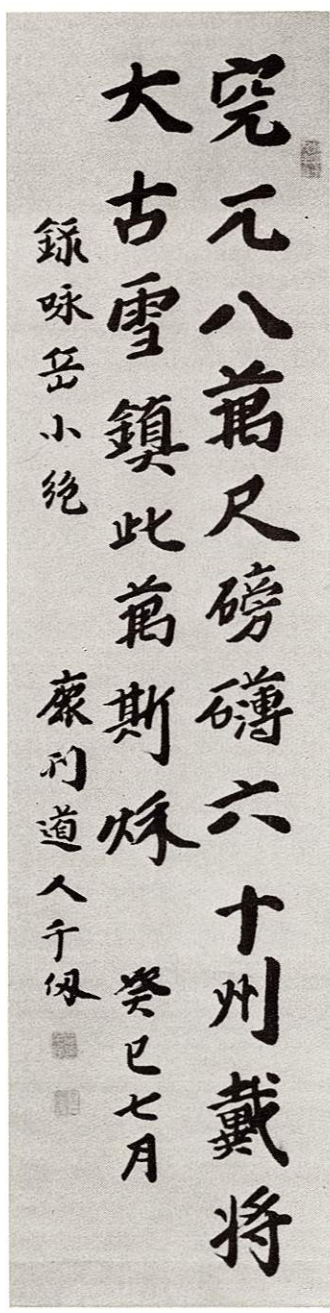 突兀八萬尺磅礴六十州戴將
大古雪鎮此萬斯秌 癸巳七月
録咏岳小絶 鹿門道人千仭